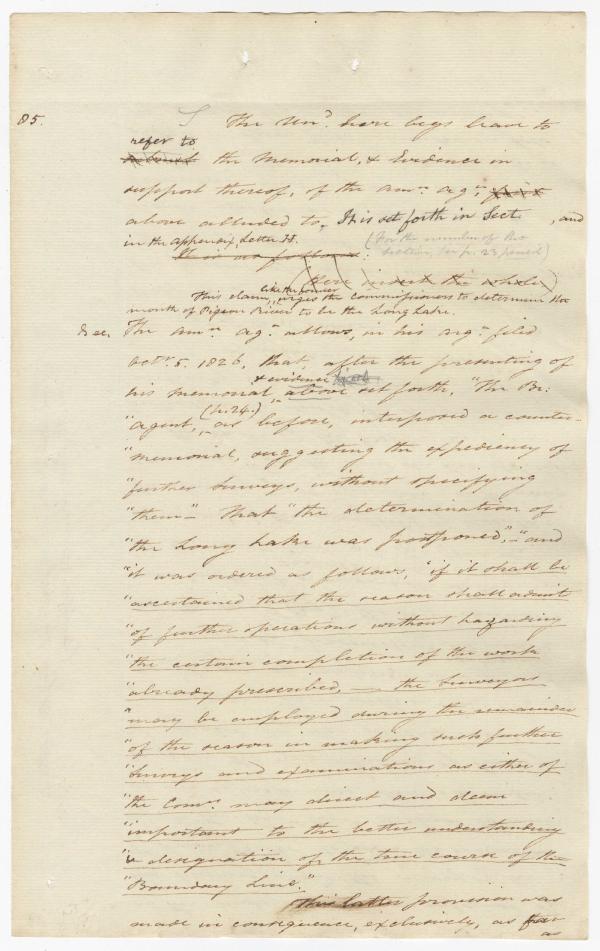 85.
The Und. here begs leave to
refer to
the Memorial, & Evidence in
support thereof, of the Amn. Agt.
above alluded to, It is set forth in Sect. , and
in the appendix, Letter H.
(For the number of the
section, see p. 23 pencil)
It is as follows:
(Here insert the whole)
like the former
This claim, urges the commissioners to determine the
mouth of Pigeon River to be the Long Lake.
Sec. The Amn. Agt. allows, in his argt. filed
Octr. 5. 1826, that, after the presenting of
& evidence
his memorial, above set forth, "The Br:
(p. 24.)
"Agent, as before, interposed a counter-
"memorial, suggesting the expediency of
"further surveys, without specifying
"them" - That "the determination of
"the Long Lake was postponed", - "and
"it was ordered as follows, "if it shall be
"ascertained that the season shall admit
"of further operations without hazarding
"the certain completion of the work
"already prescribed, — the Surveyors
"may be employed during the remainder
"of the season in making such further
"Surveys and examinations as either of
"the Comrs. may direct and deem
"important to the better understanding
"& designation of the true course of the
"Boundary Line."
This latter provision was
made in consequence, exclusively, as far
as